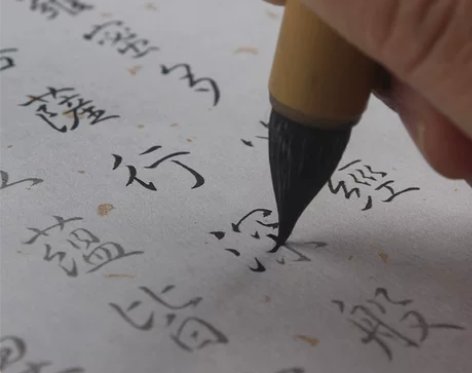 蜜多經
薩行深般
蘊皆